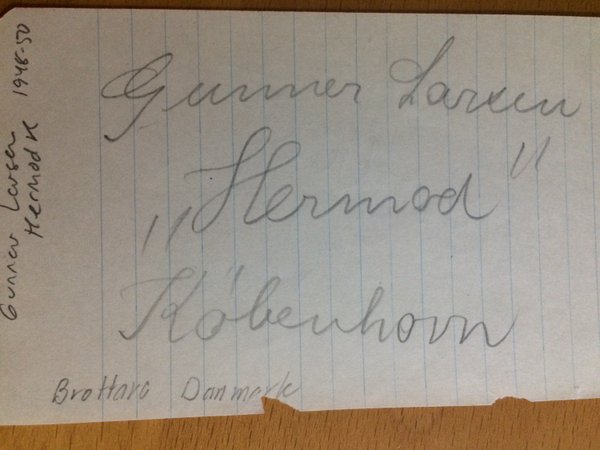 Gunner Larsen
„Hermod"
København
Brottare Danmark
Gunner Larsen
Hermod K 1948-50